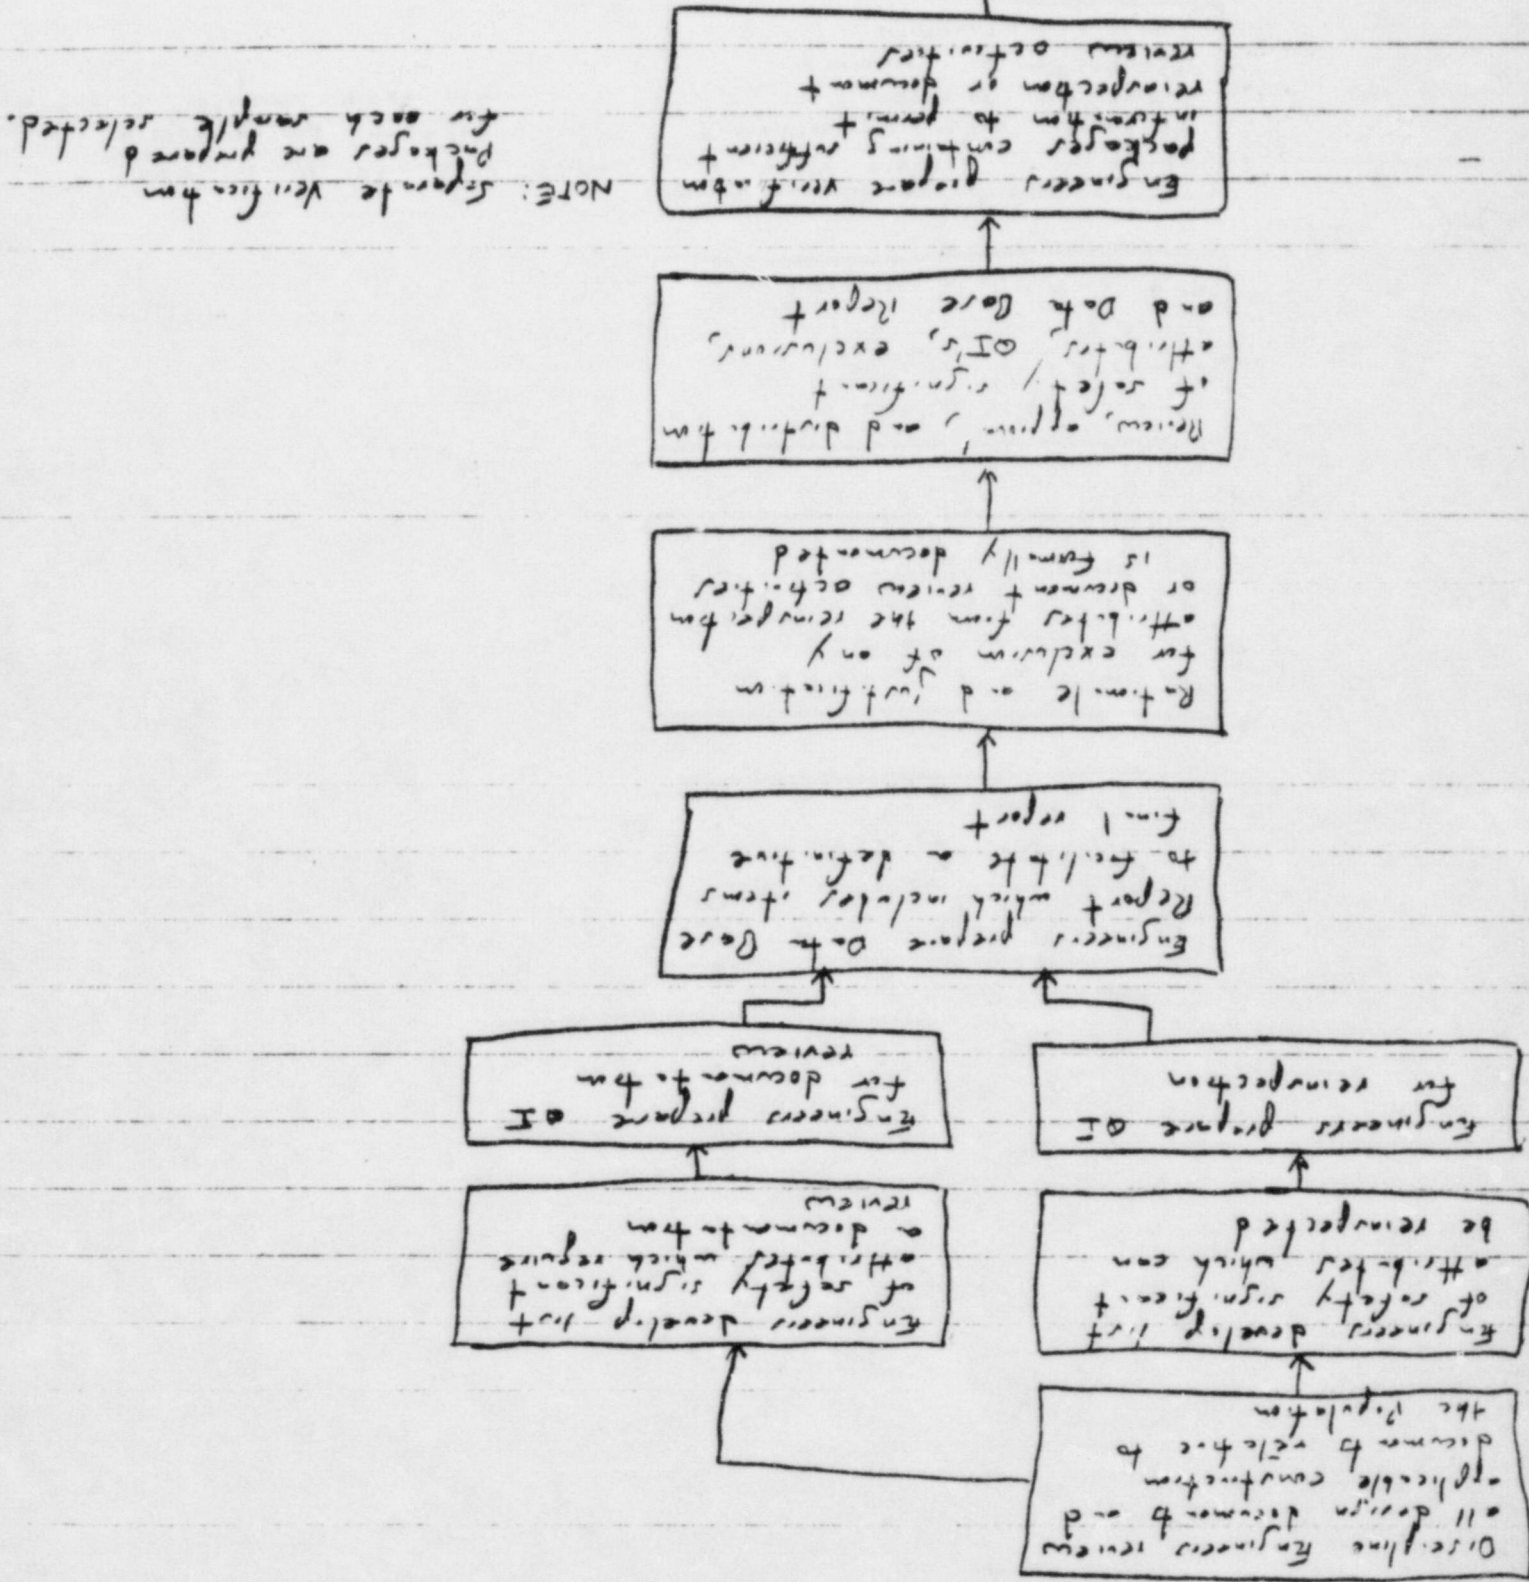 Discipline Engineers review
all design documents and
applicable construction
documents relative to
the Population
Engineers develop list
of safety significant
attributes which can
be reinspected
Engineers develop list
of safety significant
attributes which require
a documentation
review
Engineers prepare QI
for reinspection
Engineers prepare QI
for documentation
review
Engineers prepare Data Base
Report which includes items
to facilitate a definitive
final report
Rationale and justification
for exclusion of any
attributes from the reinspection
or document review activities
is formally documented
Review, approve, and distribution
of safety significant
attributes, QI's, exclusions,
and Data Base Report
Engineers prepare verification
packages containing sufficient
information to permit
reinspection or document
review activities
NOTE: Separate Verification
packages are prepared
for each sample selected.